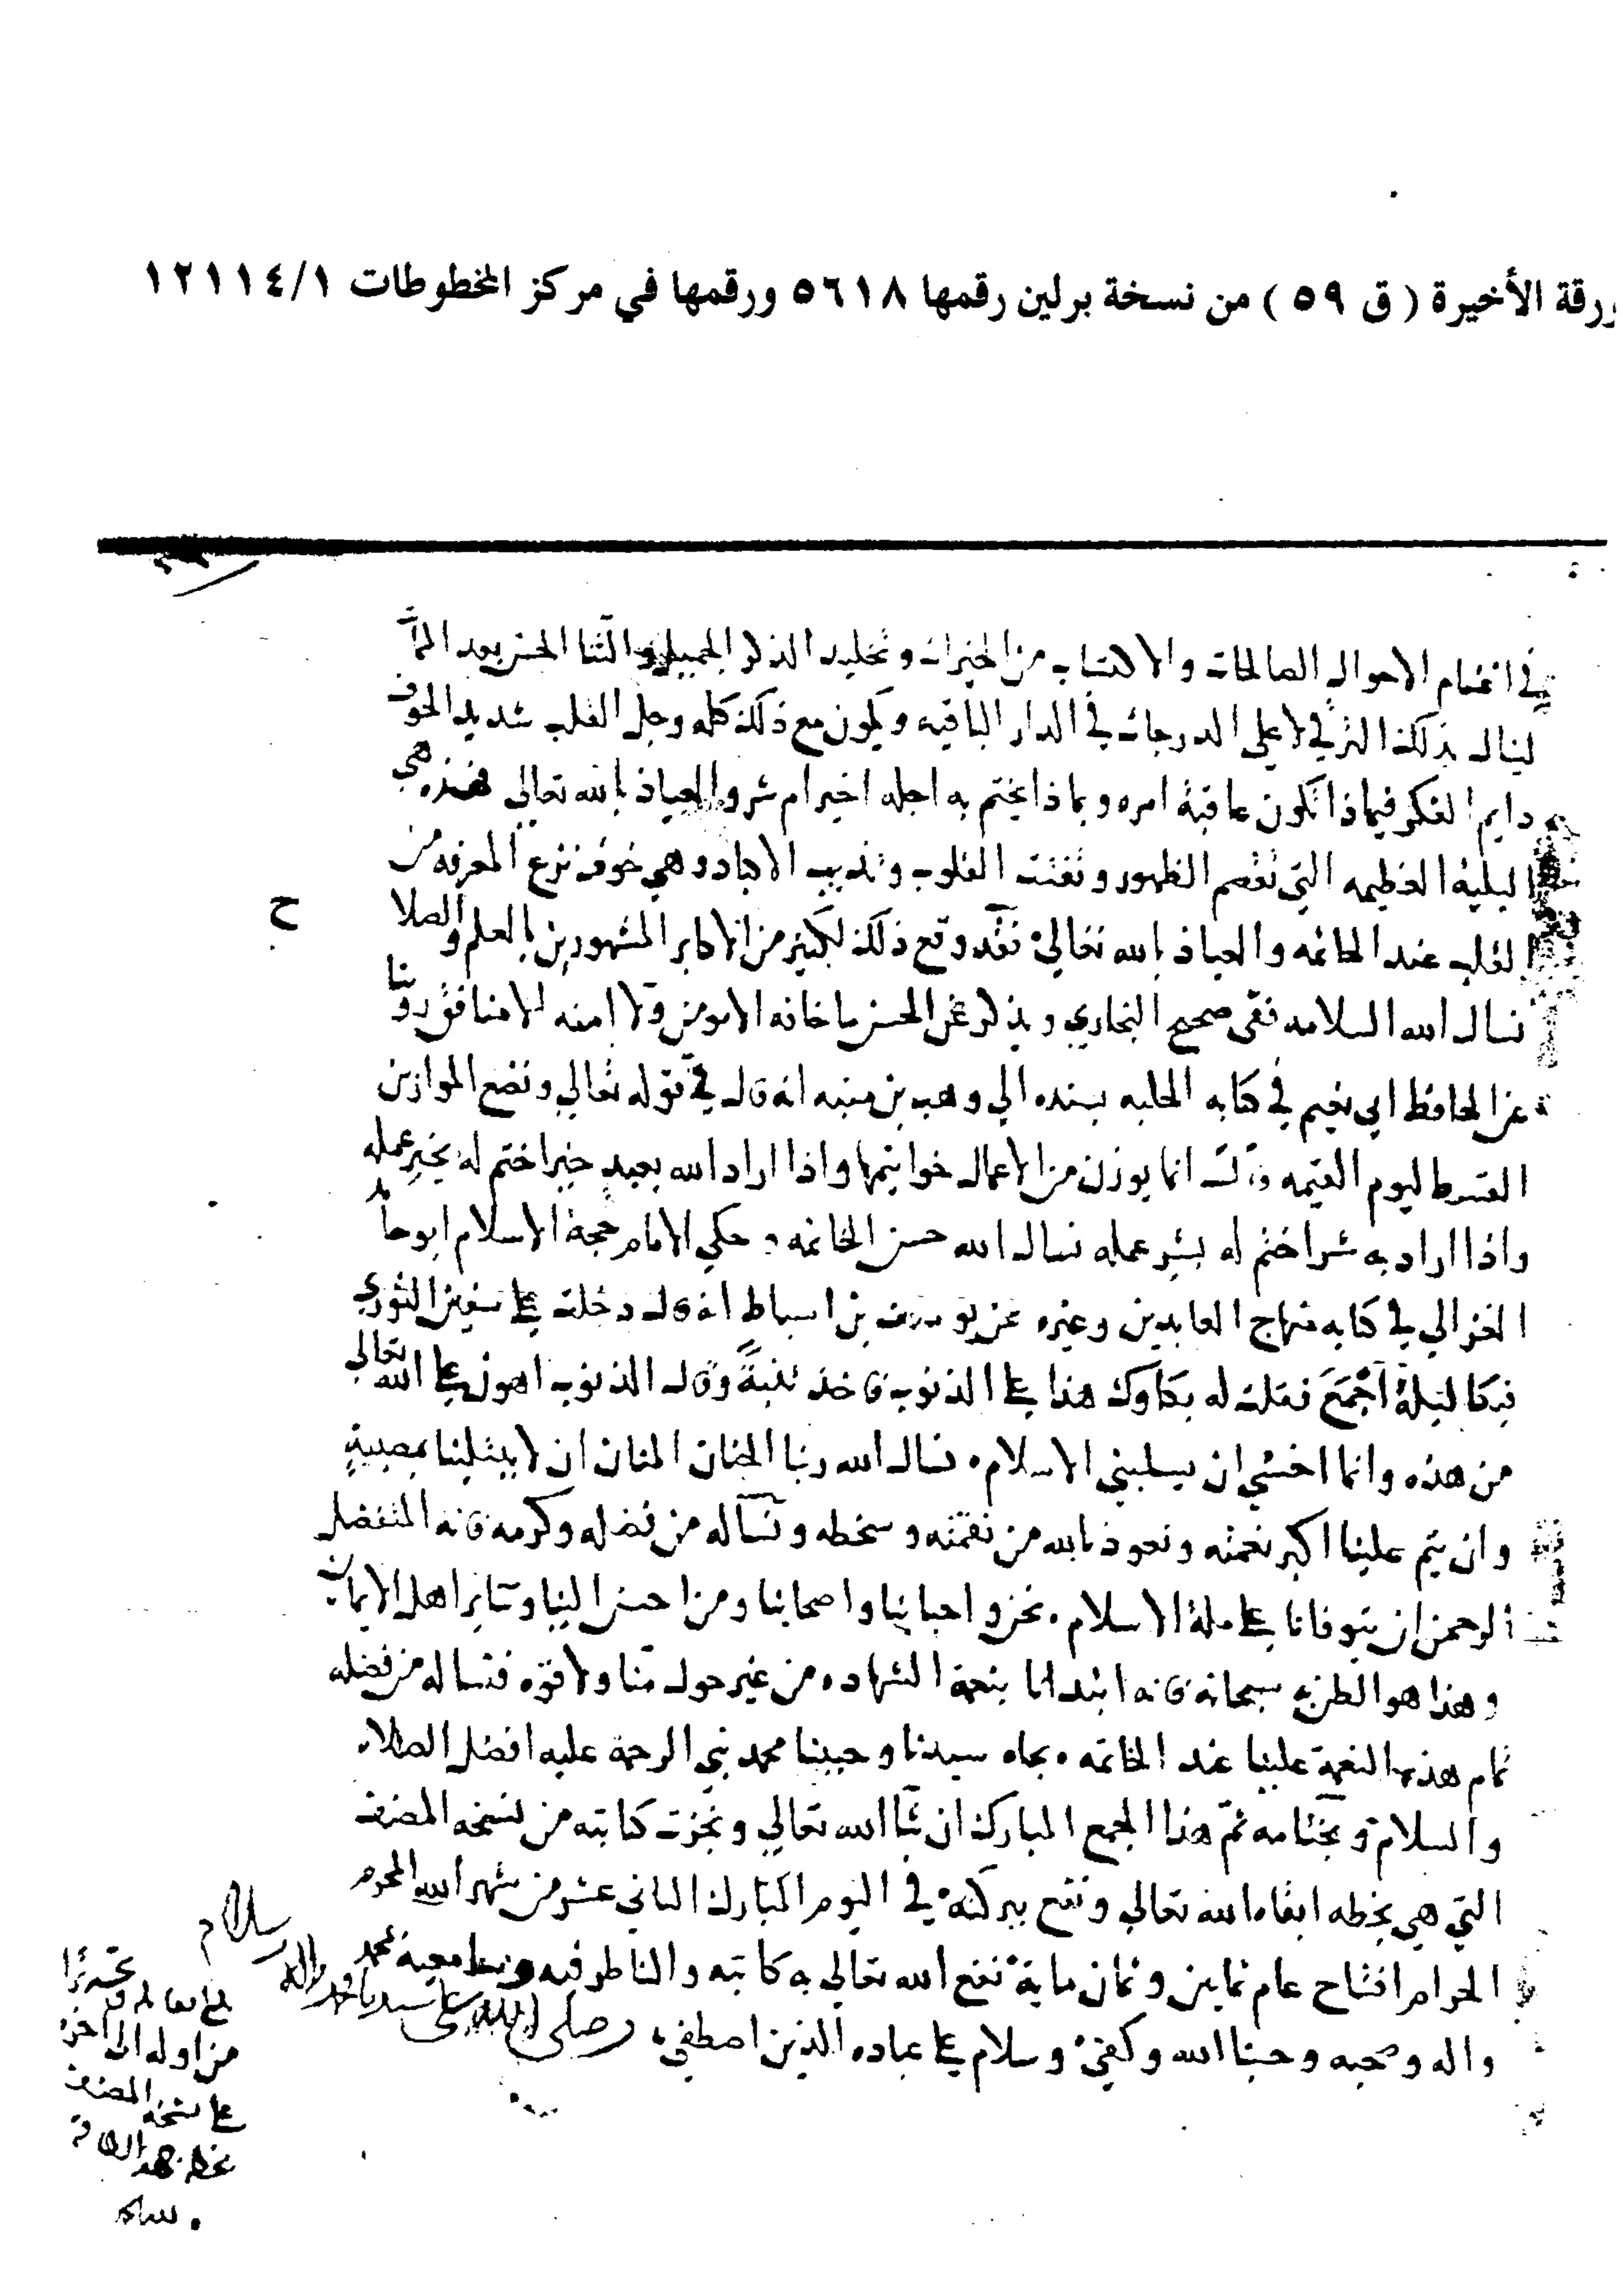 ورقة الأخيرة ( ق ٥٩ ) من نسخة برلين رقمها ٥٦١٨ ورقمها في مركز المخطوطات ١٢١١٤/١
في اغتنام الاحوال الصالحات والاكتساب من الخيرات وتخليد الذكر الجميل والثنا الحسن بعد المما
لينال بذلك الترقي لاعلى الدرجات في الدار الباقيه ويكون مع ذلك كله وجل القلب شديد الخوف
دايم الفكر فيماذا تكون عاقبة امره وبماذا يختم به اجله اخير ام شر والعياذ بالله تعالي فهذه هي
البلية العظيمه التي تقصم الظهور وتفتت القلوب وتذيب الاكباد وهي خوف نزع المعرفه من
القلب عند الخاتمه والعياذ بالله تعالي فقد وقع ذلك لكثير من الاكابر المشهورين بالعلم والصلا
ح
نسال الله السلامه ففي صحيح البخاري ويذكر عن الحسن ما خافه الا مومن ولا امنه الا منافق روينا
عن الحافظ ابي نعيم في كتابه الحليه بسنده الي وهب بن منبه انه قال في قوله تعالي ونضع الموازين
القسط ليوم القيمه قال انما يوزن من الاعمال خواتيمها واذا اراد الله بعبد خيرا ختم له بخير عمله
واذا اراد به شرا ختم له بشر عمله نسال الله حسن الخاتمه وحكي الامام حجة الاسلام ابو حامد
الغزالي في كتابه منهاج العابدين وغيره عن يوسف بن اسباط انه قال دخلت على سفين الثوري
فبكا ليلةً اجمع فقلت له بكاوك هذا على الذنوب فاخذ تبنةً وقال الذنوب اهون على الله تعالي
من هذه وانما اخشي ان يسلبني الاسلام نسال الله ربنا الحنان المنان ان لا يبتلينا بمصيبةٍ
وان يتم علينا اكبر نعمته ونعوذ بالله من نقمته وسخطه ونساله من فضله وكرمه فانه المتفضل
الرحمن ان يتوفانا على ملة الاسلام نحن واحبابنا واصحابنا ومن احسن الينا وساير اهل الايمان
وهذا هو الظن به سبحانه فانه ابتدانا بنعمة الشهاده من غير حول منا ولا قوه فنساله من فضله
تمام هذه النعمة علينا عند الخاتمه بجاه سيدنا وحبيبنا محمد نبي الرحمة عليه افضل الصلاه
والسلام وبختامه تم هذا الجمع المبارك ان شا الله تعالي ونجزت كتابته من نسخه المصنف
التي هي بخطه ابقاه الله تعالي ونفع ببركته في اليوم المبارك الثاني عشر من شهر الله المحرم
الحرام افتتاح عام ثمانين وثمان ماية نفع الله تعالي به كاتبه والناظر فيه محمد
واله وصحبه وحسبنا الله وكفي وسلام على عباده الذين اصطفي وصلى الله على سيدنا محمد واله وسلام
بلغ مقابلة
من اوله الى اخره
على نسخه المصنف